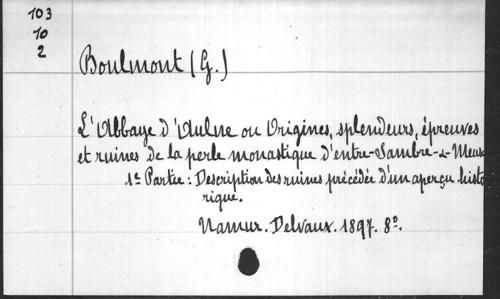 103
10
2
Boulmont (G.)
L'Abbaye d'Aulne ou Origines, splendeurs, épreuves
et ruines de la perle monastique d'entre-Sambre-&-Meuse
1e Partie: Description des ruines précédée d'un aperçu histo
rique.
Namur. Delvaux. 1897. 8°.